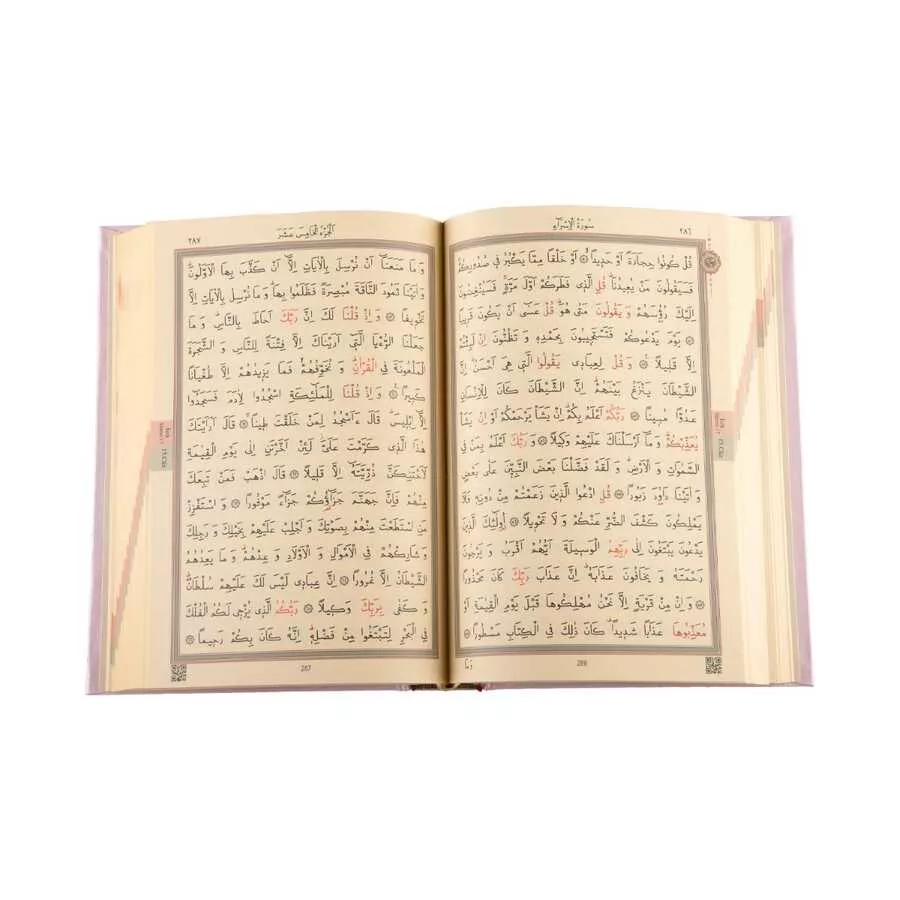 سُورَةُ الْاِسْرَاءِ
٢٨٦
قُلْ كُونُوا حِجَارَةً اَوْ حَدِيدًا ۞ اَوْ خَلْقًا مِمَّا يَكْبُرُ فِي صُدُورِكُمْ
فَسَيَقُولُونَ مَنْ يُعِيدُنَا قُلِ الَّذِي فَطَرَكُمْ اَوَّلَ مَرَّةٍ فَسَيُنْغِضُونَ
اِلَيْكَ رُؤُسَهُمْ وَ يَقُولُونَ مَتٰى هُوَ قُلْ عَسٰٓى اَنْ يَكُونَ قَرِيبًا
۞ يَوْمَ يَدْعُوكُمْ فَتَسْتَجِيبُونَ بِحَمْدِهِ وَ تَظُنُّونَ اِنْ لَبِثْتُمْ
اِلَّا قَلِيلًا ۞ وَ قُلْ لِعِبَادِي يَقُولُوا الَّتِي هِيَ اَحْسَنُ اِنَّ
الشَّيْطَانَ يَنْزَغُ بَيْنَهُمْ اِنَّ الشَّيْطَانَ كَانَ لِلْاِنْسَانِ
عَدُوًّا مُبِينًا ۞ رَبُّكُمْ اَعْلَمُ بِكُمْ اِنْ يَشَأْ يَرْحَمْكُمْ اَوْ اِنْ يَشَأْ
يُعَذِّبْكُمْ وَ مَٓا اَرْسَلْنَاكَ عَلَيْهِمْ وَكِيلًا ۞ وَ رَبُّكَ اَعْلَمُ بِمَنْ فِي
السَّمٰوَاتِ وَ الْاَرْضِ وَ لَقَدْ فَضَّلْنَا بَعْضَ النَّبِيّنَ عَلٰى بَعْضٍ
وَ اٰتَيْنَا دَاوُدَ زَبُورًا ۞ قُلِ ادْعُوا الَّذِينَ زَعَمْتُمْ مِنْ دُونِهِ فَلَا
يَمْلِكُونَ كَشْفَ الضُّرِّ عَنْكُمْ وَ لَا تَحْوِيلًا ۞ اُولٰٓئِكَ الَّذِينَ
يَدْعُونَ يَبْتَغُونَ اِلٰى رَبِّهِمُ الْوَسِيلَةَ اَيُّهُمْ اَقْرَبُ وَ يَرْجُونَ
رَحْمَتَهُ وَ يَخَافُونَ عَذَابَهُ اِنَّ عَذَابَ رَبِّكَ كَانَ مَحْذُورًا
۞ وَ اِنْ مِنْ قَرْيَةٍ اِلَّا نَحْنُ مُهْلِكُوهَا قَبْلَ يَوْمِ الْقِيٰمَةِ اَوْ
مُعَذِّبُوهَا عَذَابًا شَدِيدًا كَانَ ذٰلِكَ فِي الْكِتَابِ مَسْطُورًا ۞
وَمَا
٢٨٧
اَلْجُزْءُ الْخَامِسَ عَشَرَ
وَ مَا مَنَعَنَٓا اَنْ نُرْسِلَ بِالْاٰيَاتِ اِلَّٓا اَنْ كَذَّبَ بِهَا الْاَوَّلُونَ
وَ اٰتَيْنَا ثَمُودَ النَّاقَةَ مُبْصِرَةً فَظَلَمُوا بِهَا وَ مَا نُرْسِلُ بِالْاٰيَاتِ اِلَّا
تَخْوِيفًا ۞ وَ اِذْ قُلْنَا لَكَ اِنَّ رَبَّكَ اَحَاطَ بِالنَّاسِ وَ مَا
جَعَلْنَا الرُّءْيَا الَّتِٓي اَرَيْنَاكَ اِلَّا فِتْنَةً لِلنَّاسِ وَ الشَّجَرَةَ
الْمَلْعُونَةَ فِي الْقُرْاٰنِ وَ نُخَوِّفُهُمْ فَمَا يَزِيدُهُمْ اِلَّا طُغْيَانًا
كَبِيرًا ۞ وَ اِذْ قُلْنَا لِلْمَلٰٓئِكَةِ اسْجُدُوا لِاٰدَمَ فَسَجَدُٓوا
اِلَّٓا اِبْلِيسَ قَالَ ءَاَسْجُدُ لِمَنْ خَلَقْتَ طِينًا ۞ قَالَ اَرَاَيْتَكَ
هٰذَا الَّذِي كَرَّمْتَ عَلَيَّ لَئِنْ اَخَّرْتَنِ اِلٰى يَوْمِ الْقِيٰمَةِ
لَاَحْتَنِكَنَّ ذُرِّيَّتَهُٓ اِلَّا قَلِيلًا ۞ قَالَ اذْهَبْ فَمَنْ تَبِعَكَ
مِنْهُمْ فَاِنَّ جَهَنَّمَ جَزَٓاؤُكُمْ جَزَٓاءً مَوْفُورًا ۞ وَ اسْتَفْزِزْ
مَنِ اسْتَطَعْتَ مِنْهُمْ بِصَوْتِكَ وَ اَجْلِبْ عَلَيْهِمْ بِخَيْلِكَ وَ رَجِلِكَ
وَ شَارِكْهُمْ فِي الْاَمْوَالِ وَ الْاَوْلَادِ وَ عِدْهُمْ وَ مَا يَعِدُهُمُ
الشَّيْطَانُ اِلَّا غُرُورًا ۞ اِنَّ عِبَادِي لَيْسَ لَكَ عَلَيْهِمْ سُلْطَانٌ
وَ كَفٰى بِرَبِّكَ وَكِيلًا ۞ رَبُّكُمُ الَّذِي يُزْجِي لَكُمُ الْفُلْكَ
فِي الْبَحْرِ لِتَبْتَغُوا مِنْ فَضْلِهِ اِنَّهُ كَانَ بِكُمْ رَحِيمًا ۞
287